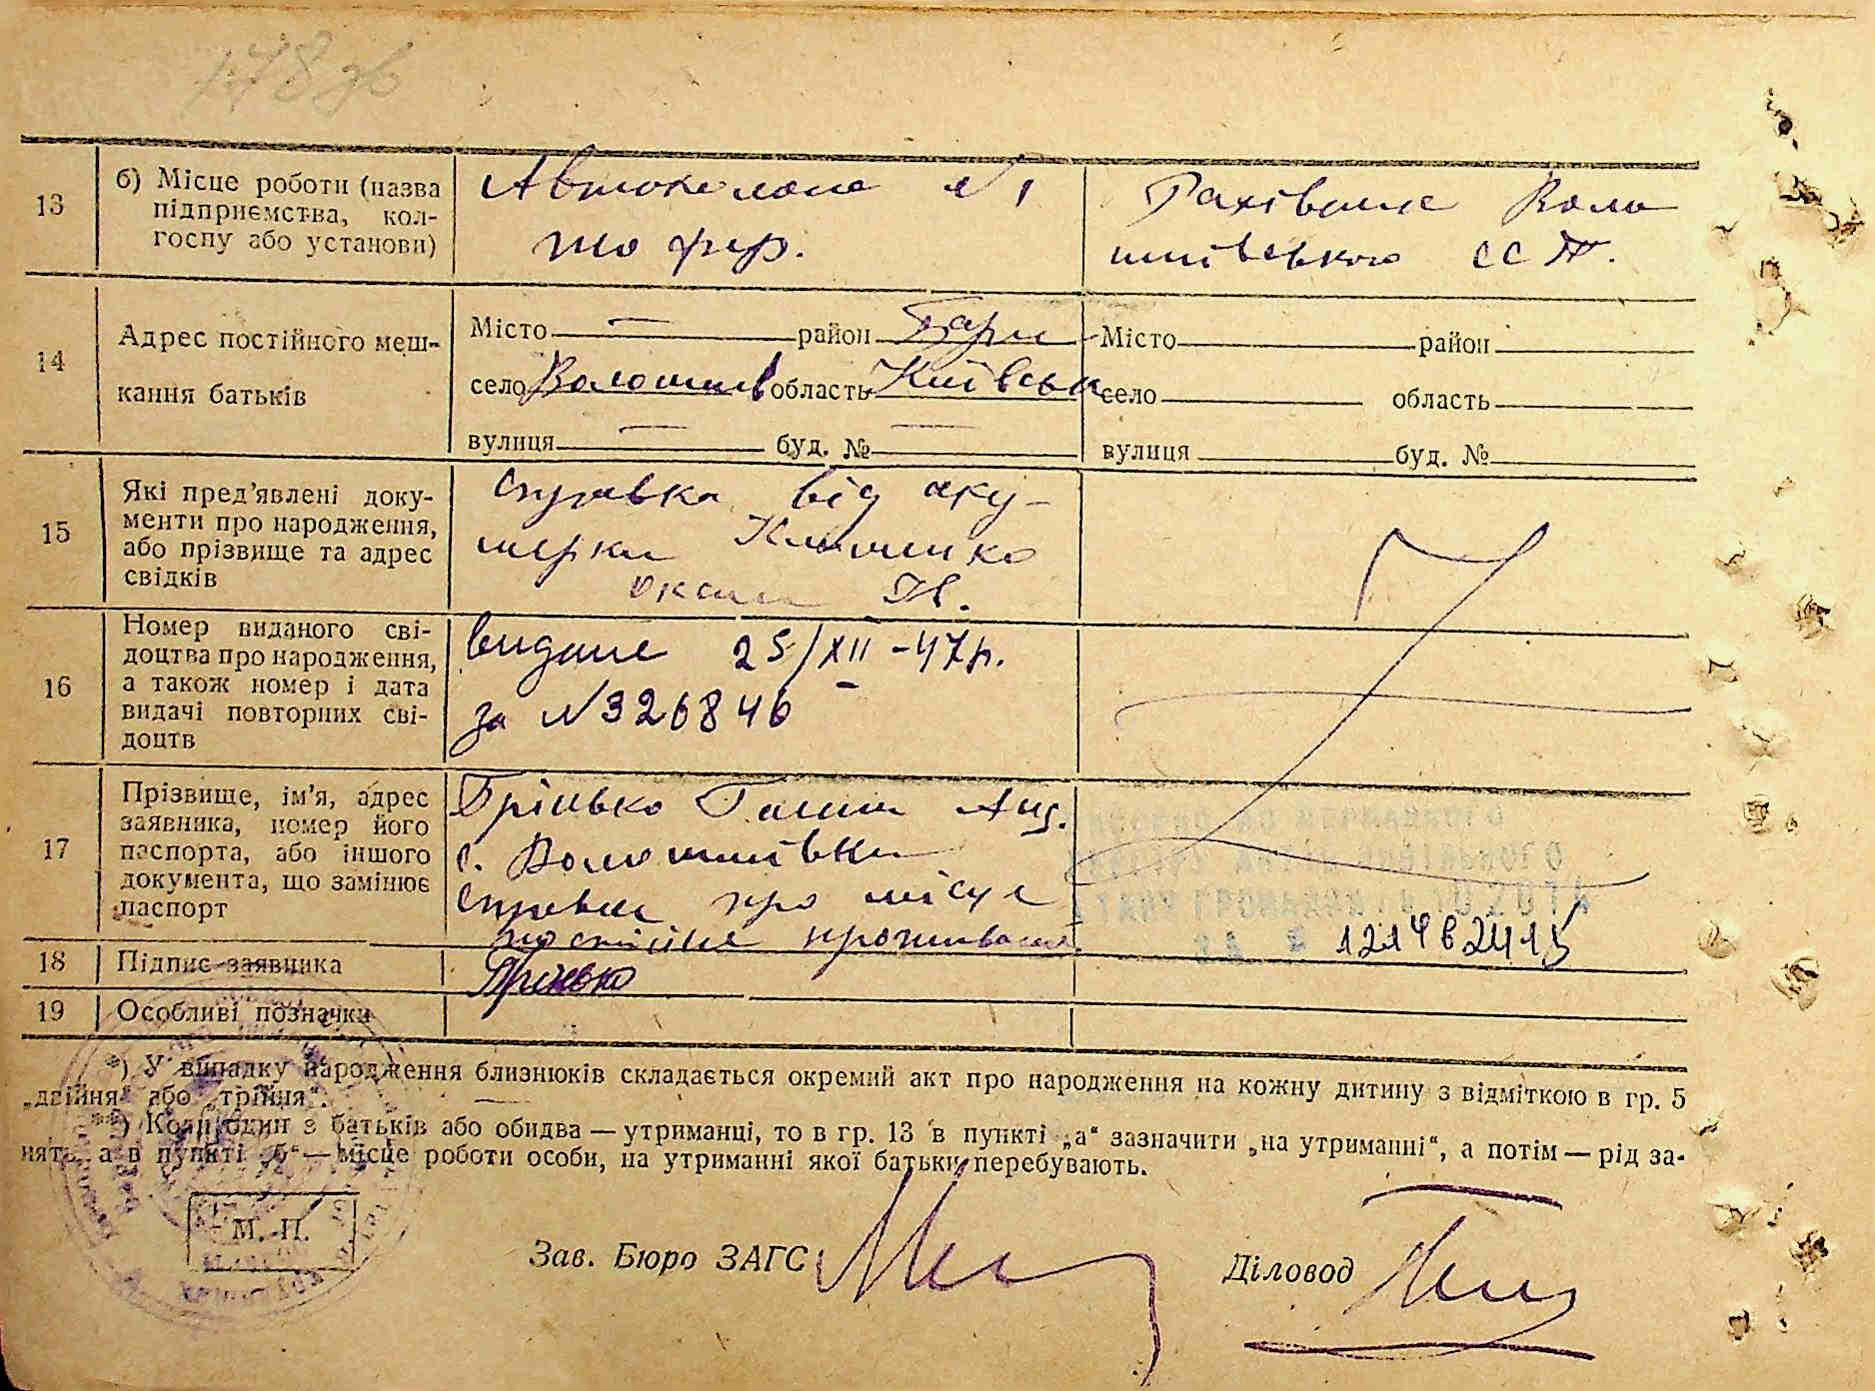 178 зв
13
б) Місце роботи (назва
підприємства, кол-
госпу або установи)
Автоколона №1
шофер.
Рахівник Воло
шнівського ССТ.
14
Адрес постійного меш-
кання батьків
Місто — район Бари
село область Київська
вулиця — буд. № —
Місто район
село область
вулиця буд. №
15
Які пред'явлені доку-
менти про народження,
або прізвище та адрес
свідків
Справка від аку-
шерки Клименко
Ів.
16
Номер виданого сві-
доцтва про народження,
а також номер і дата
видачі повторних сві-
доцтв
видане 25/XII-47р.
за №326846
17
Прізвище, ім'я, адрес
заявника, номер його
паспорта, або іншого
документа, що замінює
паспорт
Грінько Ганна Анд.
с. Волошинівка
справка про місце
постійне проживання.
1214824115
18
Підпис заявника
Грінько
19
Особливі позначки
*) У випадку народження близнюків складається окремий акт про народження на кожну дитину з відміткою в гр. 5
„двійня“ або „трійня“.
**) Коли один з батьків або обидва — утриманці, то в гр. 13 в пункті „а“ зазначити „на утриманні“, а потім — рід за-
нять, а в пункті „б“ — місце роботи особи, на утриманні якої батьки перебувають.
М. П.
Зав. Бюро ЗАГС
Діловод